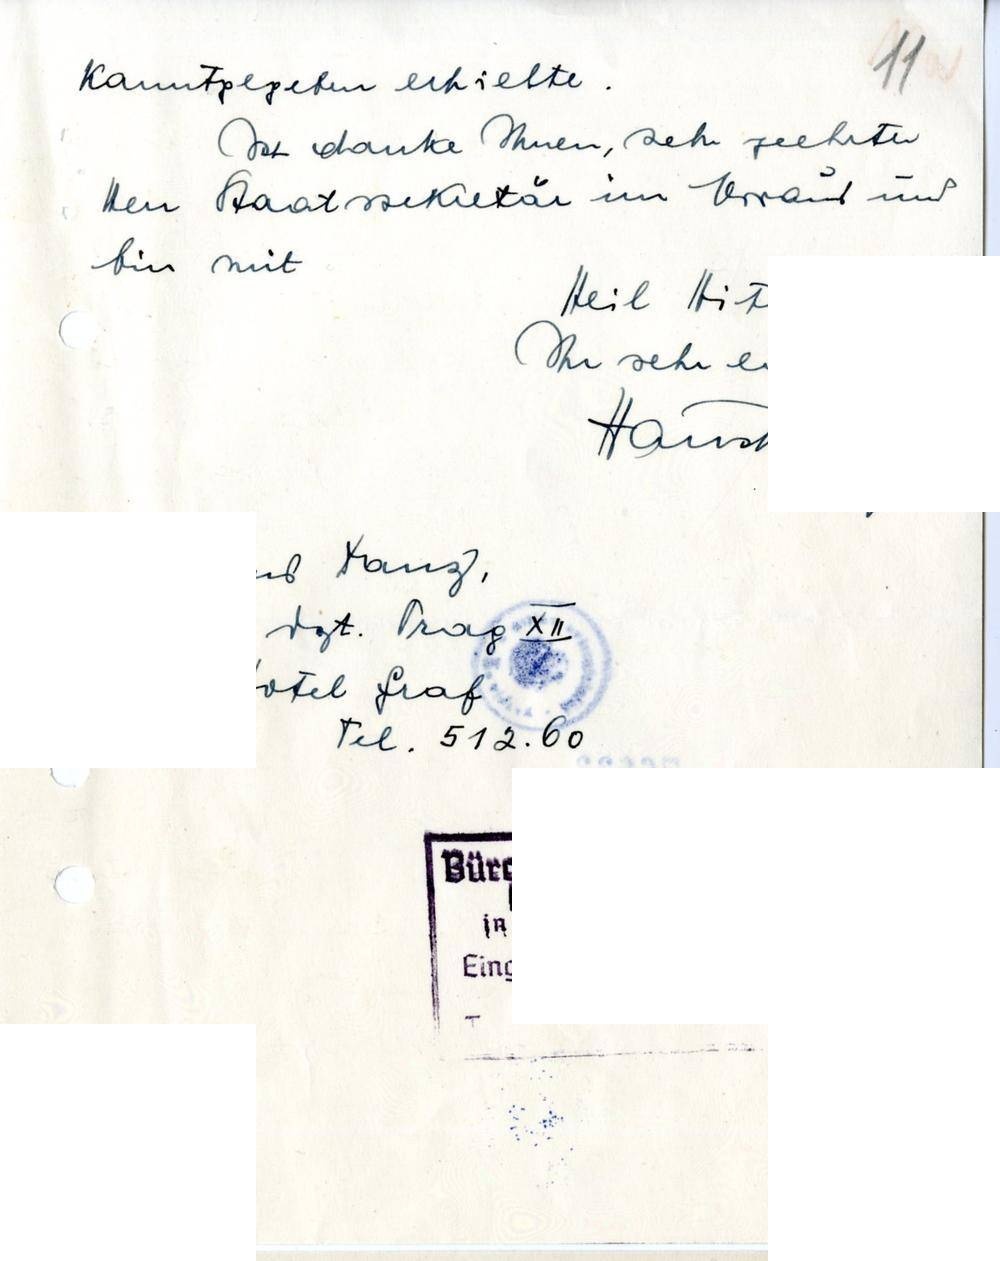 11
kanntgegeben erhielte.
Ich danke Ihnen, sehr geehrter
Herr Staatssekretär im Voraus und
bin mit
Heil Hit
Ihr sehr er
Hansk
Tanz,
dzt. Prag XII
Hotel Graf
Tel. 512.60
Bürg
in
Eing
T